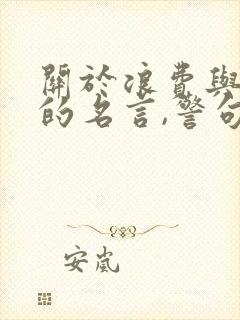 關於浪費與
的名言,警句
安嵐